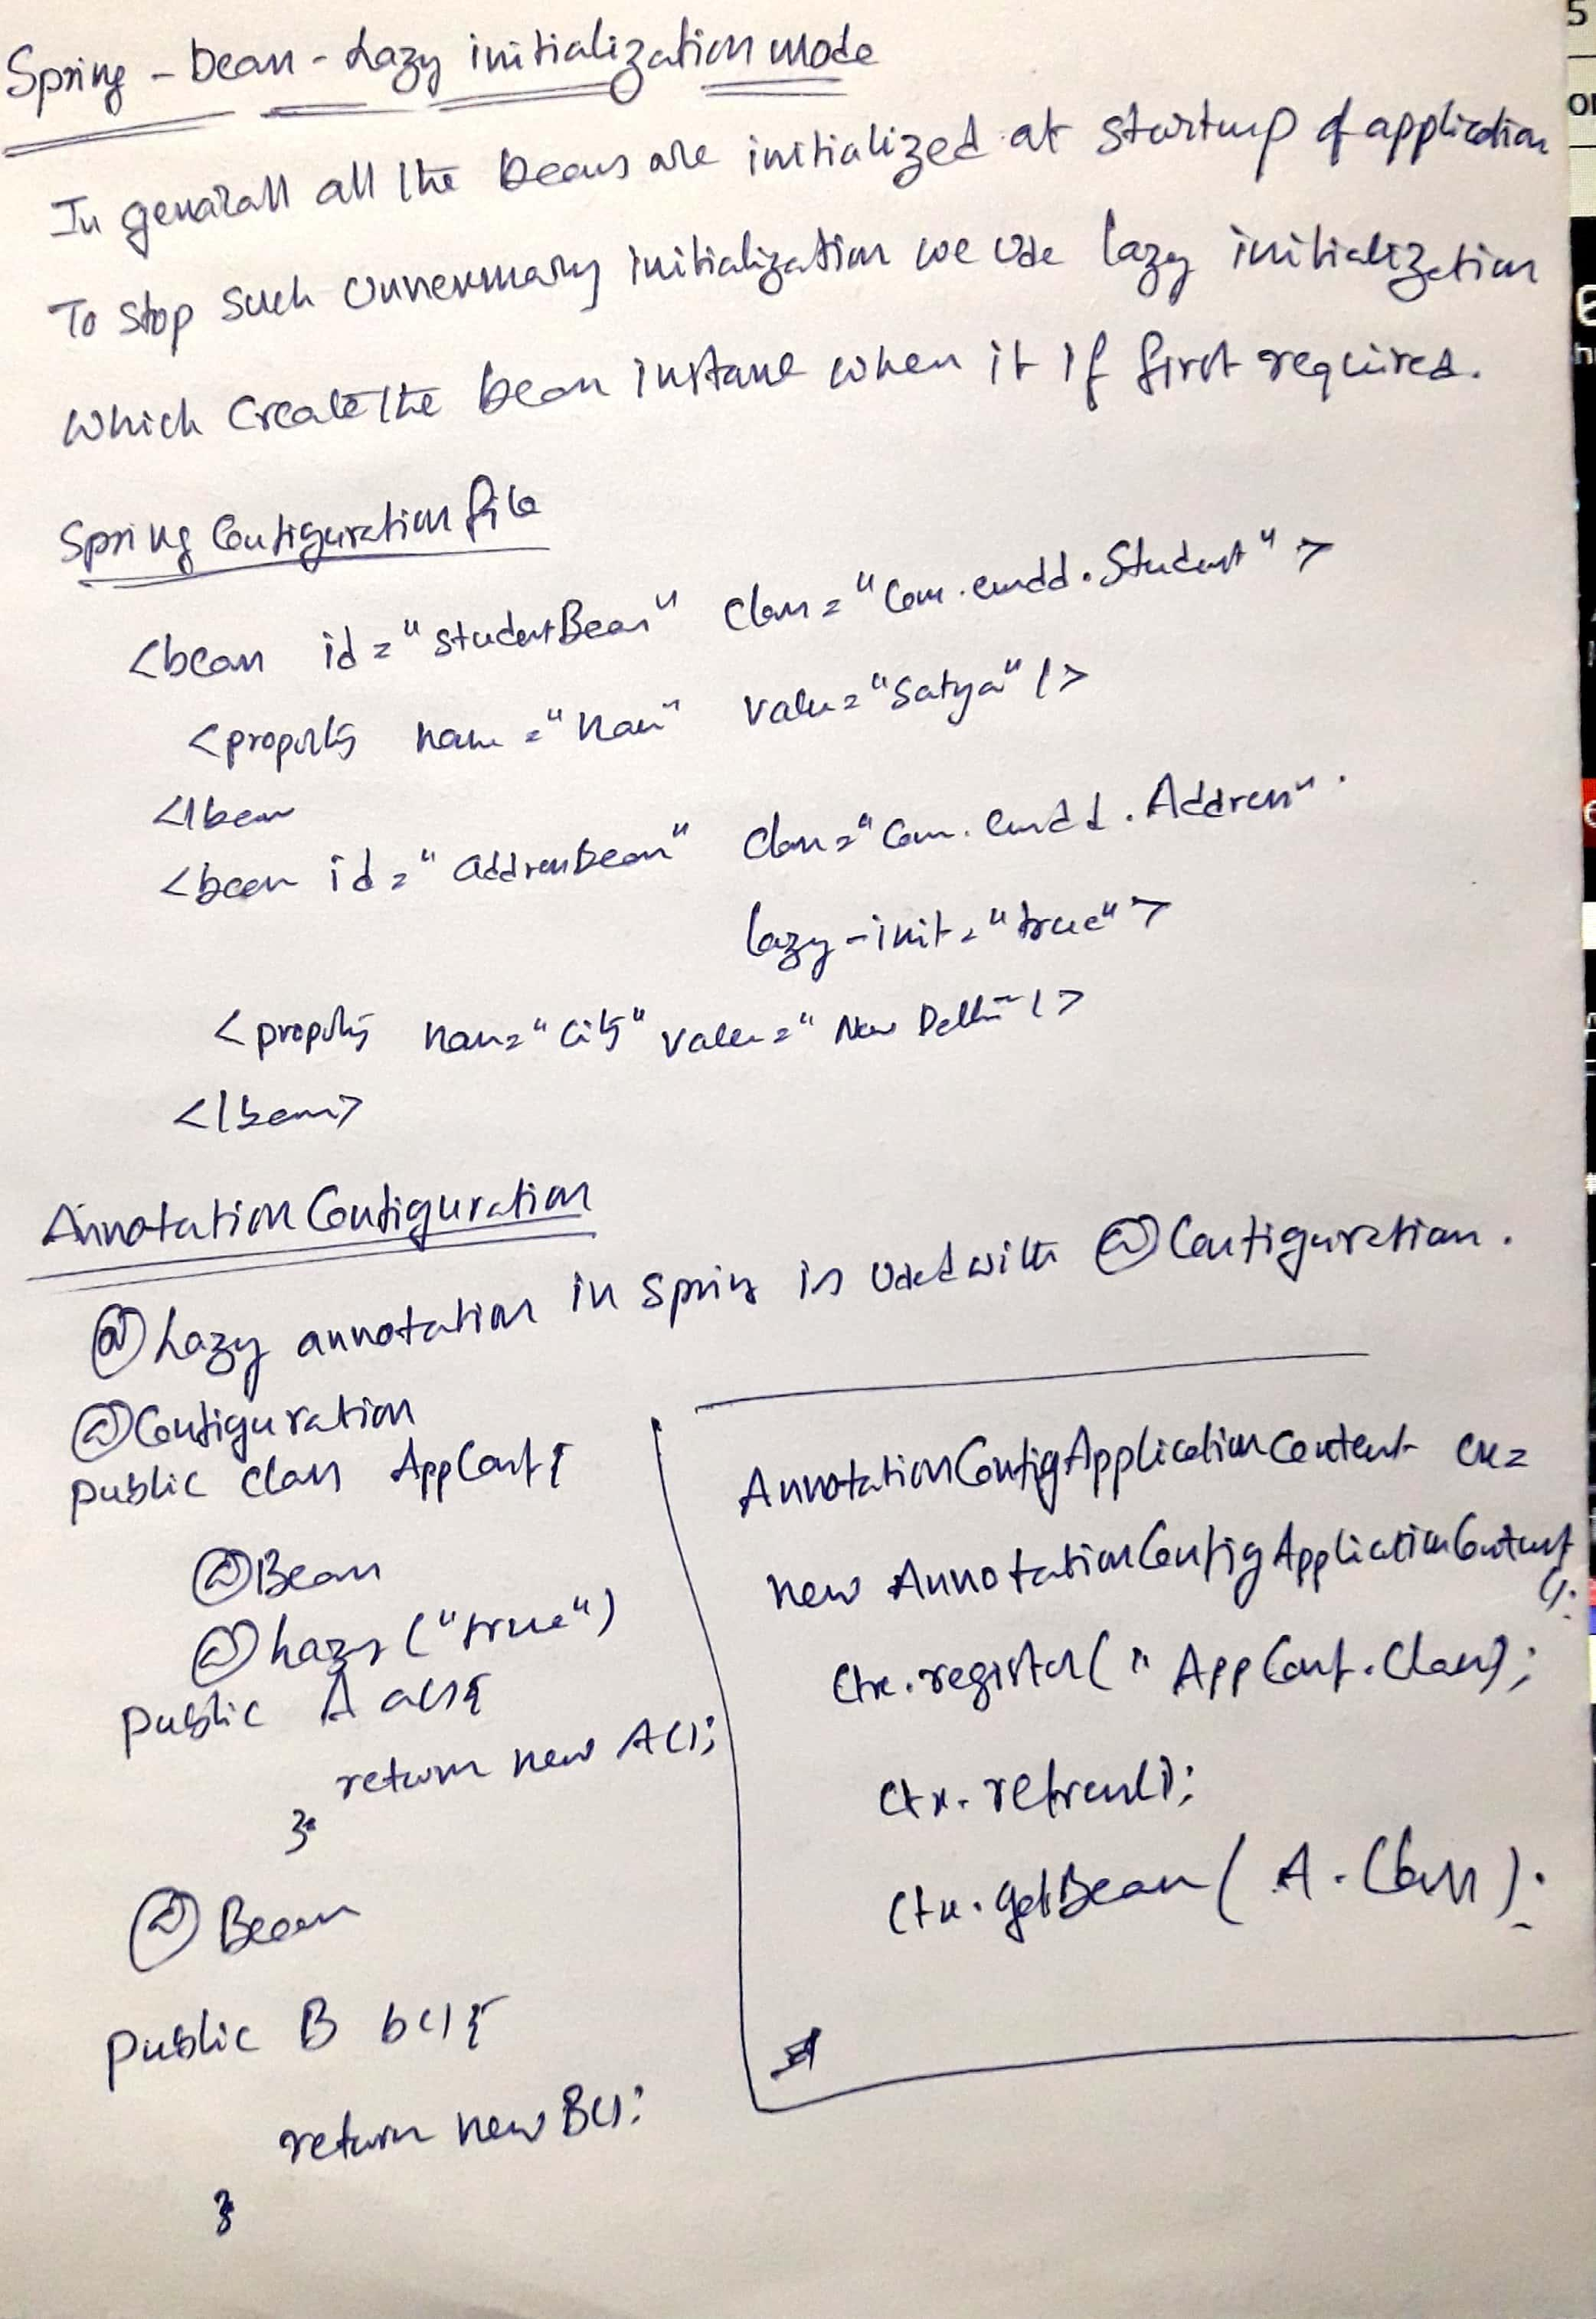 Spring - bean - Lazy initialization mode
In generall all the beans are initialized at startup of application
To stop such unnecessary initialization we use lazy initialization
which create the bean instance when it is first required.
Spring Configuration file
<bean id="studentBean" class="com.cmdd.Student">
<property name="name" value="Satya"/>
</bean
<bean id="addressbean" class="com.cmdd.Address"
lazy-init="true">
<property name="city" value="New Delhi"/>
</bean>
Annotation Configuration
@Lazy annotation in spring is used with @Configuration.
@Configuration
public class AppConf{
@Bean
@Lazy("true")
public A a(){
return new A();
}
@Bean
public B b(){
return new B();
}
AnnotationConfigApplicationContext ctx=
new AnnotationConfigApplicationContext
();
ctx.register("AppConf.class);
ctx.refresh();
ctx.getBean(A.class);